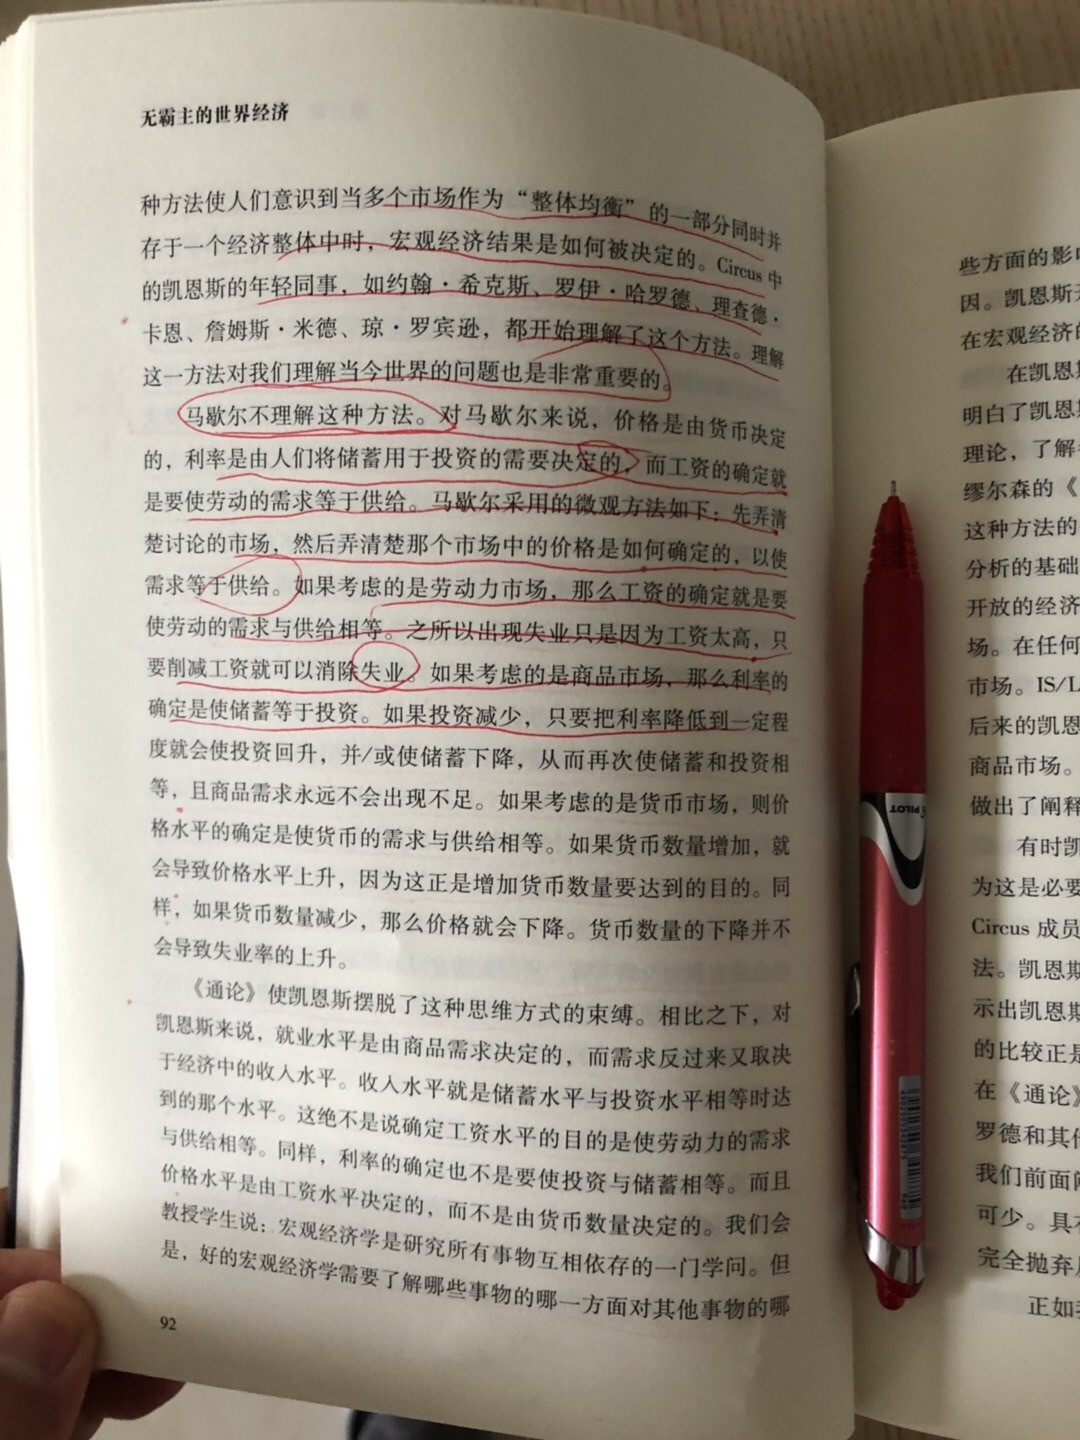 无霸主的世界经济
种方法使人们意识到当多个市场作为“整体均衡”的一部分同时并
存于一个经济整体中时，宏观经济结果是如何被决定的。Circus 中
的凯恩斯的年轻同事，如约翰·希克斯、罗伊·哈罗德、理查德·
卡恩、詹姆斯·米德、琼·罗宾逊，都开始理解了这个方法。理解
这一方法对我们理解当今世界的问题也是非常重要的。
马歇尔不理解这种方法。对马歇尔来说，价格是由货币决定
的，利率是由人们将储蓄用于投资的需要决定的，而工资的确定就
是要使劳动的需求等于供给。马歇尔采用的微观方法如下：先弄清
楚讨论的市场，然后弄清楚那个市场中的价格是如何确定的，以使
需求等于供给。如果考虑的是劳动力市场，那么工资的确定就是要
使劳动的需求与供给相等。之所以出现失业只是因为工资太高，只
要削减工资就可以消除失业。如果考虑的是商品市场，那么利率的
确定是使储蓄等于投资。如果投资减少，只要把利率降低到一定程
度就会使投资回升，并/或使储蓄下降，从而再次使储蓄和投资相
等，且商品需求永远不会出现不足。如果考虑的是货币市场，则价
格水平的确定是使货币的需求与供给相等。如果货币数量增加，就
会导致价格水平上升，因为这正是增加货币数量要达到的目的。同
样，如果货币数量减少，那么价格就会下降。货币数量的下降并不
会导致失业率的上升。
《通论》使凯恩斯摆脱了这种思维方式的束缚。相比之下，对
凯恩斯来说，就业水平是由商品需求决定的，而需求反过来又取决
于经济中的收入水平。收入水平就是储蓄水平与投资水平相等时达
到的那个水平。这绝不是说确定工资水平的目的是使劳动力的需求
与供给相等。同样，利率的确定也不是要使投资与储蓄相等。而且
价格水平是由工资水平决定的，而不是由货币数量决定的。我们会
教授学生说：宏观经济学是研究所有事物互相依存的一门学问。但
是，好的宏观经济学需要了解哪些事物的哪一方面对其他事物的哪
92
些方面的影
因。凯恩斯
在宏观经济的
在凯恩
明白了凯恩
理论，了解
缪尔森的《
这种方法的
分析的基础
开放的经济
场。在任何
市场。IS/L
后来的凯恩
商品市场。
做出了阐释
有时凯
为这是必要
Circus 成员
法。凯恩斯
示出凯恩斯
的比较正是
在《通论》
罗德和其他
我们前面
可少。具
完全抛弃
正如
PILOT